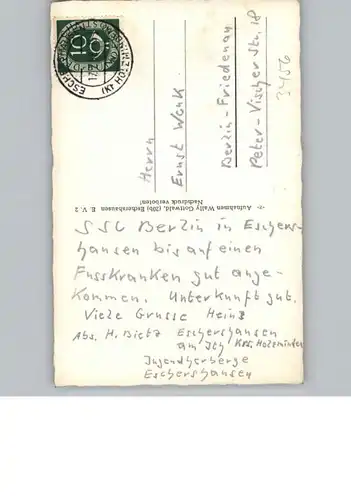 ESCHER
(KR HOLZ
10
Herrn
Ernst Wonk
Berlin-Friedenau
Peter-Vischer Str. 18
3456
Aufnahmen Wally Gottwald, (20b) Eschershausen E. V. 2
Nachdruck verboten!
SSC Berlin in Eschers-
hausen bis auf einen
Fusskranken gut ange-
kommen. Unterkunft gut.
Viele Grüsse Heinz
Abs. H. Dietz Eschershausen
am Ith Krs. Holzminden
Jugendherberge
Eschershausen